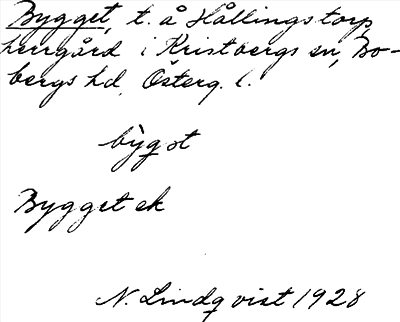 Bygget, t. å Hållingstorp,
herrgård i Kristbergs sn, Bo-
bergs hd, Österg. l.
bỳgst
Bygget ek
N. Lindqvist 1928